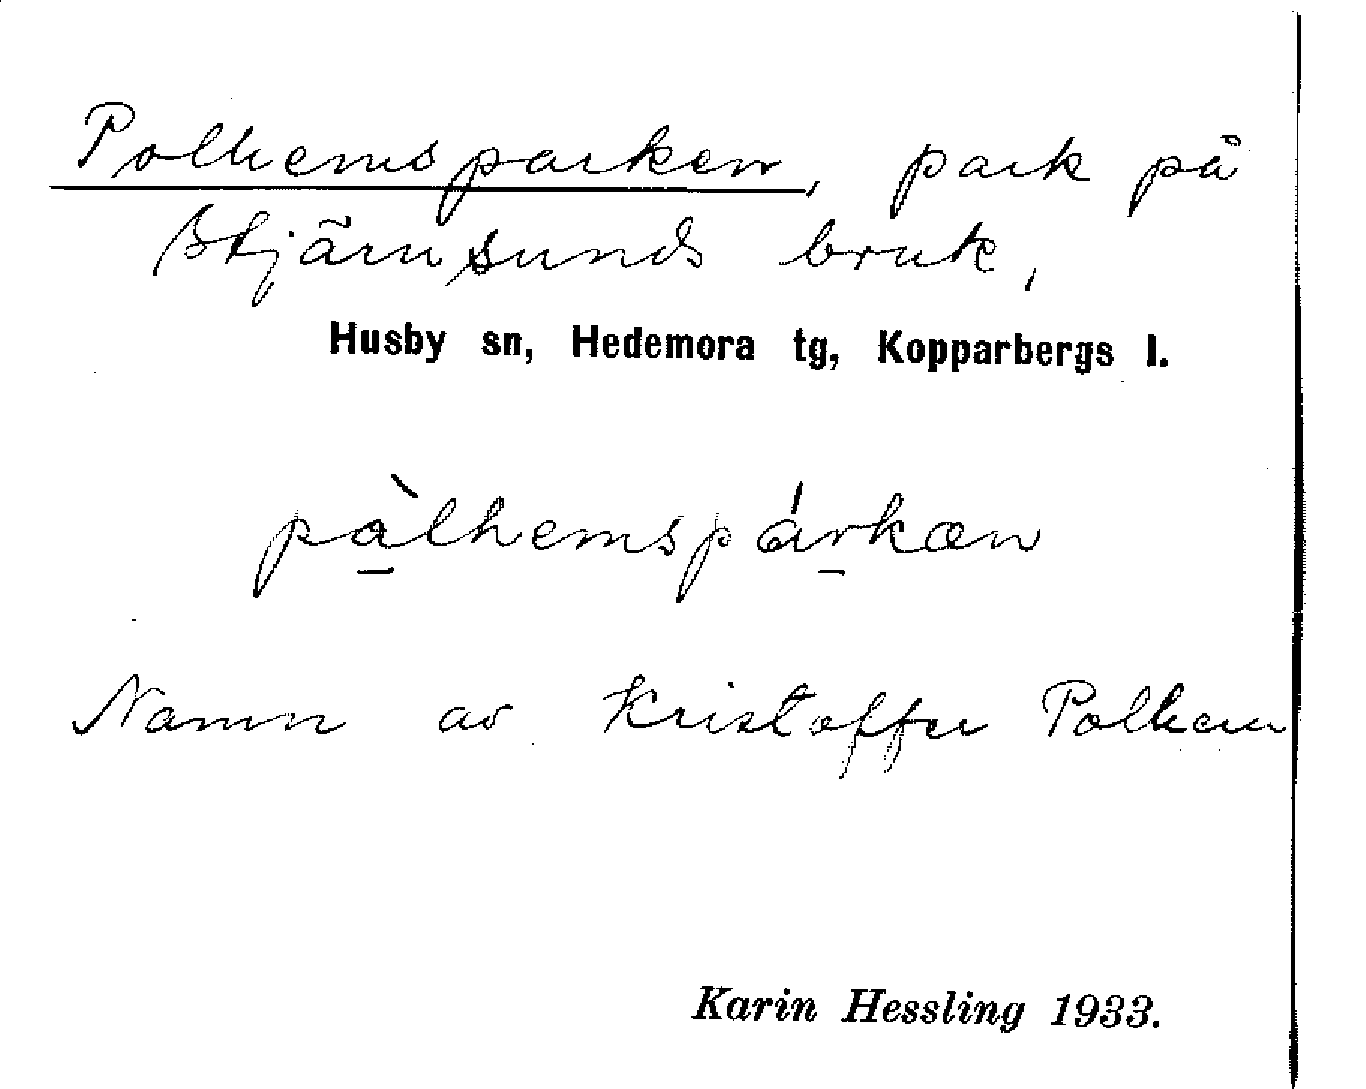 Polhemsparken, park på
Stjärnsunds bruk,
Husby sn, Hedemora tg, Kopparbergs l.
pàlhemspárkæn
Namn av Kristoffer Polhem
Karin Hessling 1933.